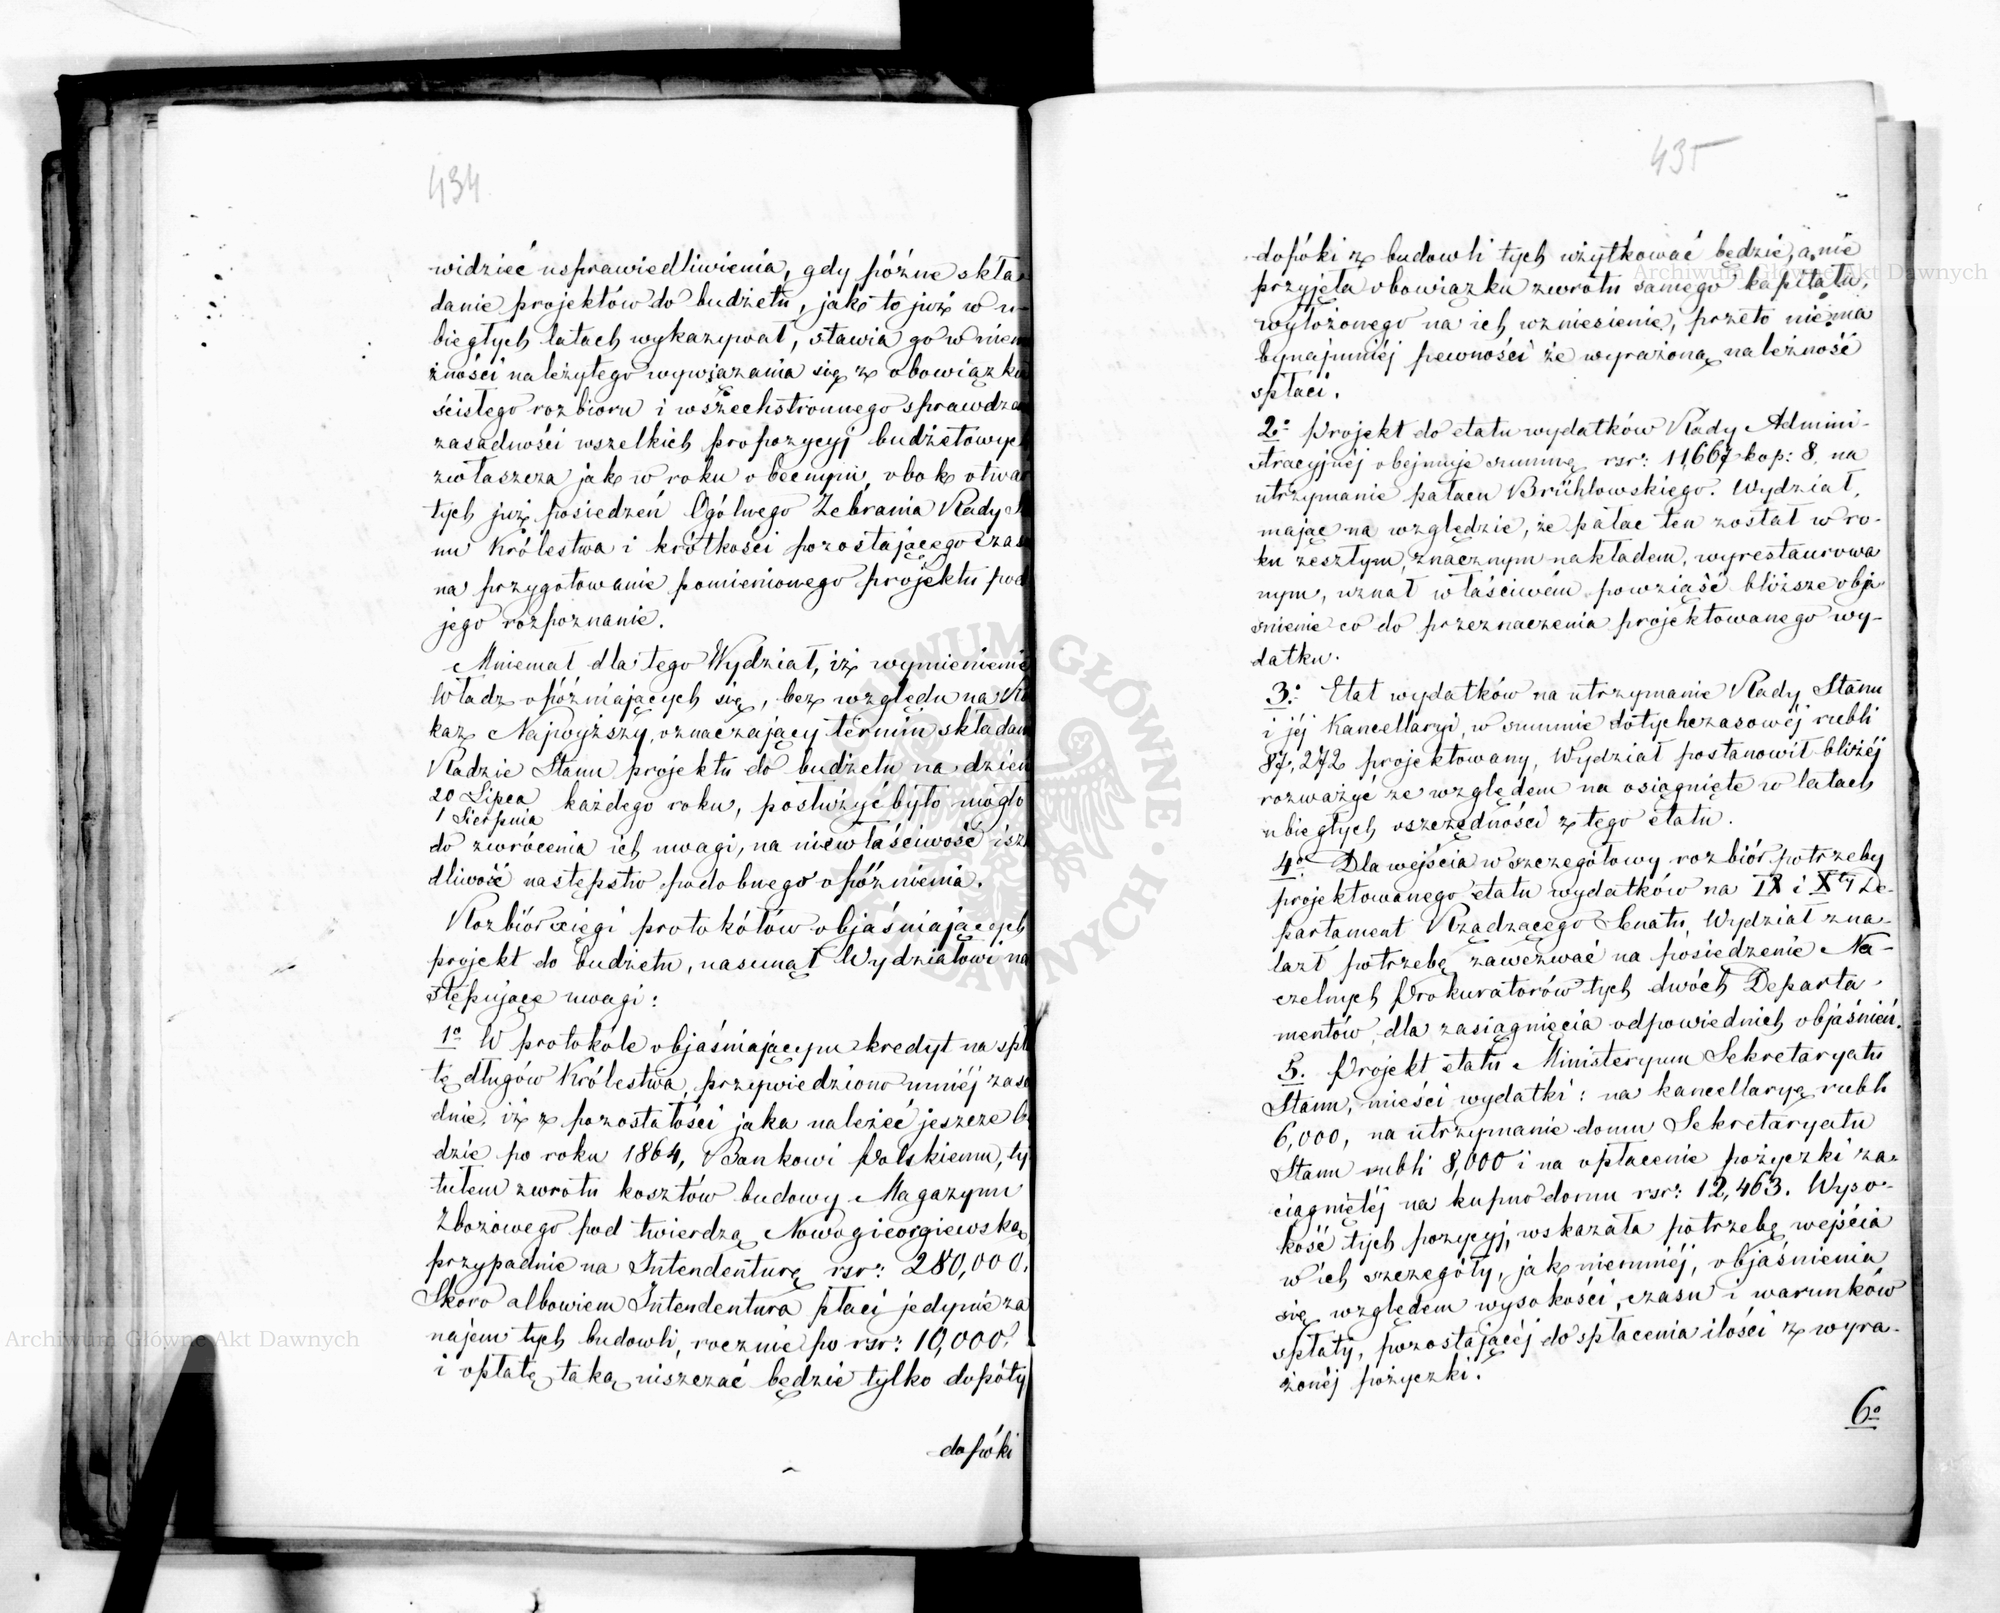 434
widzieć usprawiedliwienia, gdy późne skła-
danie projektów do budżetu, jak to już w u-
biegłych latach wykazywał, stawia go w niem
żności należytego wywiązania się z obowiązku
ścisłego rozbioru i wszechstronnego sprawdza
zasadności wszelkich propozycyj budżetowych
zwłaszcza jak w roku obecnym, obok otwar
tych już posiedzeń Ogólnego Zebrania Rady S
nu Królestwa i krótkości pozostającego czasu
na przygotowanie pomienionego projektu pod
jego rozpoznanie.
Mniemał dla tego Wydział, iż wymienienie
Władz opóźniających się, bez względu na Ro
kaz Najwyższy, oznaczający termin składan
Radzie Stanu projektu do budżetu na dzień
20 Lipca
1 Sierpnia
każdego roku, posłużyć było mogło
do zwrócenia ich uwagi, na niewłaściwość i szk
dliwość następstw podobnego opóźnienia.
Rozbiór księgi protokółów objaśniających
projekt do budżetu, nasunął Wydziałowi na
stępujące uwagi:
1o W protokóle objaśniającym kredyt na spła
tę długów Królestwa, przywiedziono mniéj zasa
dnie, iż z pozostałości jaka należeć jeszcze bę
dzie po roku 1864, Bankowi Polskiemu, ty
tułem zwrotu kosztów budowy Magazynu
Zbożowego pod twierdzą Nowogieorgiewską,
przypadnie na Intendenturę rsr: 280,000.
Skoro albowiem Intendentura płaci jedynie za
najem tych budowli, rocznie po rsr: 10,000.
i opłatę taką uiszczać będzie tylko dopóty
dopóki
435
dopóki z budowli tych użytkować będzie, a nie
przyjęła obowiązku zwrotu samego kapitału,
wyłożonego na ich wzniesienie, przeto niéma
bynajmniéj pewności że wyrażoną należność
spłaci.
2o Projekt do etatu wydatków Rady Admini-
stracyjnéj obejmuje summę rsr: 11,667 kop: 8, na
utrzymanie pałacu Brühlowskiego. Wydział,
mając na względzie, że pałac ten został w ro-
ku zeszłym, znacznym nakładem, wyrestaurowa
nym, uznał właściwém powziąść bliższe obja-
śnienie co do przeznaczenia projektowanego wy-
datku.
3o Etat wydatków na utrzymanie Rady Stanu
i jéj Kancellaryi, w summie dotychczasowéj rubli
87,272 projektowany, Wydział postanowił bliżéj
rozważyć ze względem na osiągnięte w latach
ubiegłych oszczędności z tego etatu.
4o Dla wejścia w szczegółowy rozbiór potrzeby
projektowanego etatu wydatków na IX i Xty De-
partament Rządzącego Senatu, Wydział zna-
lazł potrzebę zawezwać na posiedzenie Na-
czelnych Prokuratorów tych dwóch Departa-
mentów, dla zasiągnięcia odpowiednich objaśnień.
5. Projekt etatu Ministeryum Sekretaryatu
Stanu, mieści wydatki: na kancellaryę rubli
6,000, na utrzymanie domu Sekretaryatu
Stanu rubli 8,000 i na opłacenie pożyczki za-
ciągniętéj na kupno domu rsr: 12,463. Wyso-
kość tych pozycyj, wskazała potrzebę wejścia
w ich szczegóły, jak niemniéj, objaśnienia
się względem wysokości, czasu i warunków
spłaty, pozostającéj do spłacenia ilości z wyra-
żonéj pożyczki.
6o
Archiwum Główne Akt Dawnych
Archiwum Główne Akt Dawnych
ARCHIWUM GŁÓWNE AKT DAWNYCH